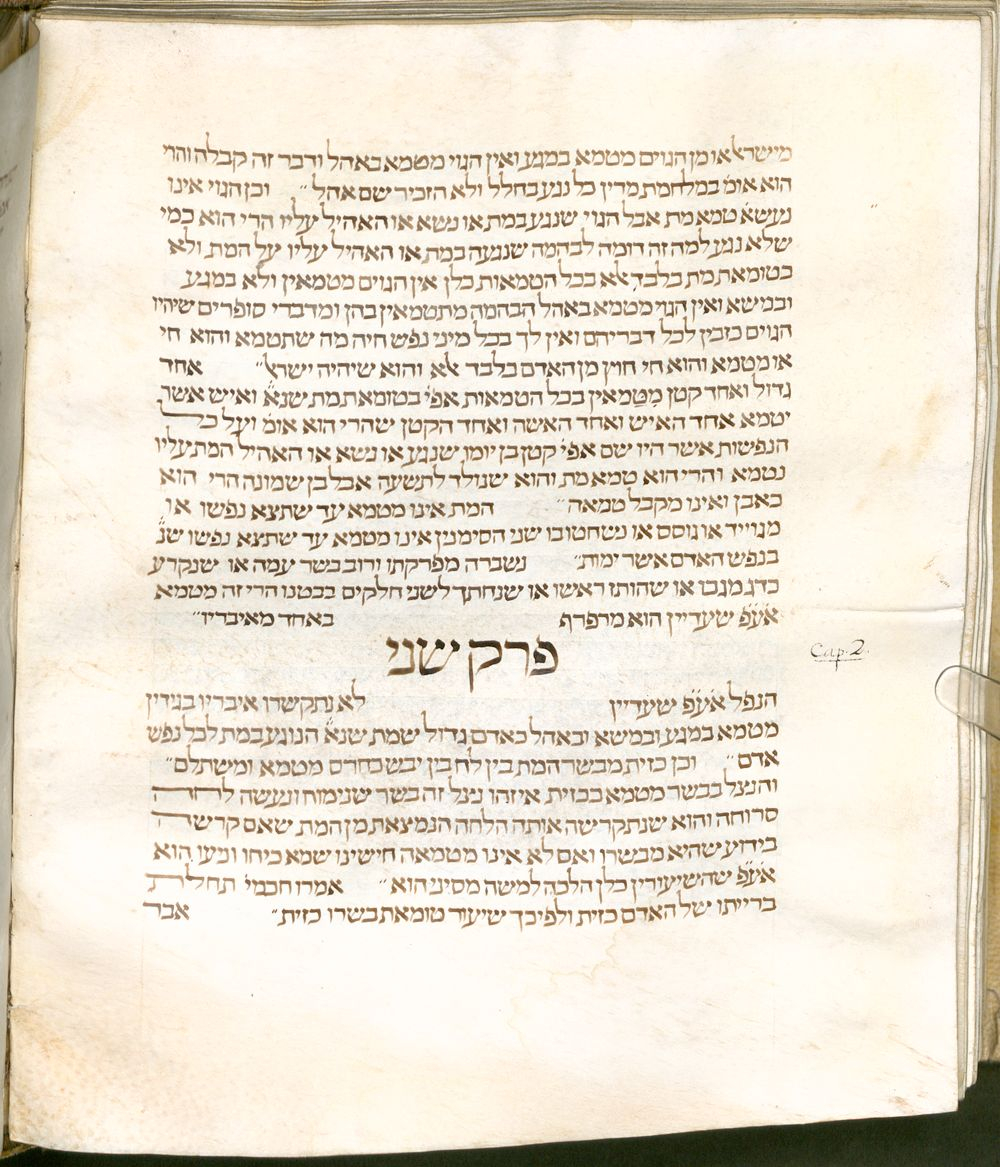 מישראל או מן הגוים מטמא במגע ואין הגוי מטמא באהל ודבר זה קבלה והרי
הוא אומ׳ במלחמת מדין כל נגע בחלל ולא הזכיר שם אהל״ וכן הגוי אינו
נעשה טמא מת אבל הגוי שנגע במת או נשא או האהיל עליו הרי הוא כמי
שלא נגע למה זה דומה לבהמה שנגעה במת או האהיל עליו על המת ולא
בטומאת מת בלבד אלא בכל הטמאות כלן אין הגוים מטמאין ולא במגע
ובמשא ואין הגוי מטמא באהל הבהמה מתטמאין בהן ומדברי סופרים שיהיו
הגוים כזבין לכל דבריהם ואין לך בכל מיני נפש חיה מה שתטמא והוא חי
או מטמא והוא חי חוץ מן האדם בלבד אלא והוא שיהיה ישראל״ אחד
גדול ואחד קטן מטמאין בכל הטמאות אפי׳ בטומאת מת שנא׳ ואיש אשר
יטמא אחד האיש ואחד האשה ואחד הקטן שהרי הוא אומ׳ ועל כל
הנפשות אשר היו שם אפי׳ קטן בן יומו שנגע או נשא או האהיל המת עליו
נטמא והרי הוא טמא מת והוא שנולד לתשעה אבל בן שמונה הרי הוא
כאבן ואינו מקבל טמאה״ המת אינו מטמא עד שתצא נפשו או
מגוייד או גוסס או נשחטו בו שני הסימנין אינו מטמא עד שתצא נפשו שנ׳
בנפש האדם אשר ימות״ נשברה מפרקתו ורוב בשר עמה או שנקרע
כדג מגבו או שהותז ראשו או שנחתך לשני חלקים בבטנו הרי זה מטמא
אע״פ שעדיין הוא מרפרף באחד מאיבריו״
פרק שני
Cap. 2.
הנפל אע״פ שעדיין לא נתקשרו איבריו בגידין
מטמא במגע ובמשא ובאהל כאדם גדול שמת שנא׳ הנוגע במת לכל נפש
אדם״ וכן כזית מבשר המת בין לח בין יבש כחרס מטמא ומשתלם״
והנצל כבשר מטמא בכזית איזהו נצל זה בשר שנימוח ונעשה לחה
סרוחה והוא שנתקרשה אותה הלחה הנמצאת מן המת שאם קרשה
בידוע שהיא מבשרו ואם לא אינו מטמאה חישינו שמא כיחו וניעו הוא
אע״פ שהשיעורין כלן הלכה למשה מסיני הוא״ אמרו חכמי׳ תחלת
ברייתו של האדם כזית ולפיכך שיעור טומאת בשרו כזית״ אבר